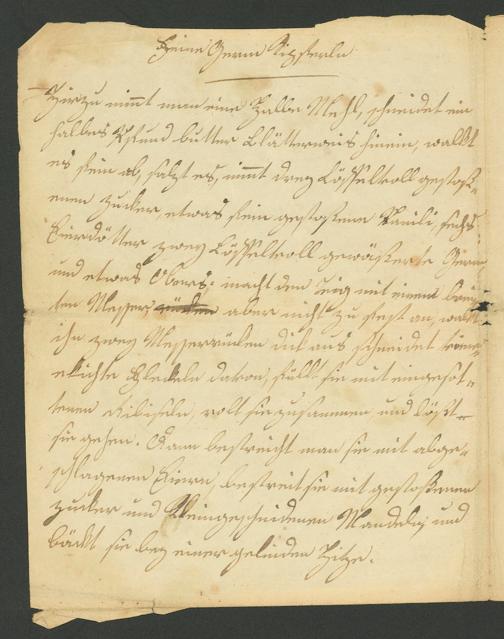 Feine Germ Kipferln
Hierzu nimmt man eine Halbe Mehl, schneidet ein
halbes Pfund butter blätterweis hinein, walkt
es fein ab, salzt es, nimmt drey Löffelvoll gestoß-
enen zucker, etwas fein gestoßene Vanili, sechs
Eierdötter zwey Löffelvoll gewässerte Germ
und etwas Obers: macht den teig mit einem brei-
ten Messer rücken aber nicht zu fest an, walkt
ihn zwey Messerrücken dick aus, schneidet
eckichte Fleckeln davon, füllt sie mit eingesot-
tenen Ribiseln, rolt sie zusammen und läßt
sie gehen. Dann bestreicht man sie mit abge-
schlagenen Eiern, bestreit sie mit gestoßenen
zucker und kleingeschnidenen Mandeln und
bäckt sie bey einer gelinden Hitze.